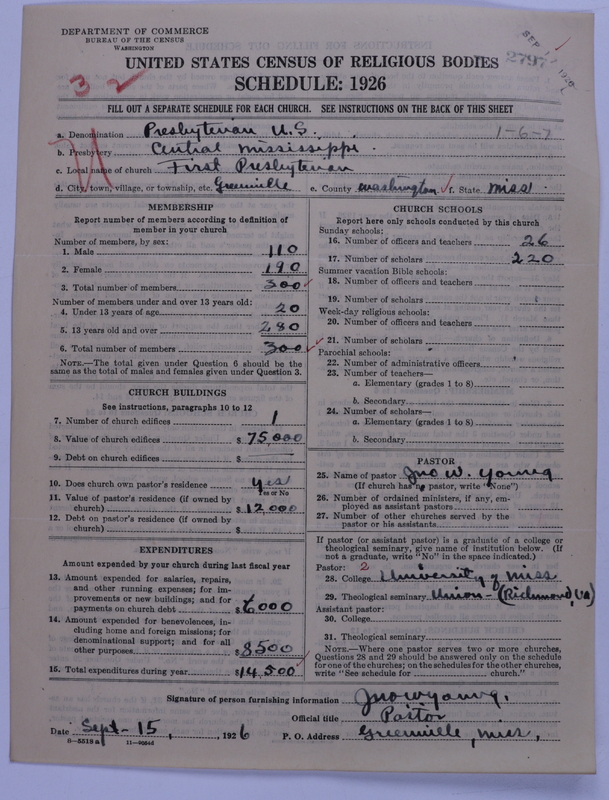 DEPARTMENT OF COMMERCE
BUREAU OF THE CENSUS
WASHINGTON
SEP 17 1926
2797
UNITED STATES CENSUS OF RELIGIOUS BODIES
SCHEDULE: 1926
32
FILL OUT A SEPARATE SCHEDULE FOR EACH CHURCH. SEE INSTRUCTIONS ON THE BACK OF THIS SHEET
a. Denomination Presbyterian U.S. 1-6-7
b. Presbytery Central Mississippi.
c. Local name of church First Presbyterian
d. City, town, village, or township, etc. Greenville e. County Washington f. State Miss.
MEMBERSHIP
Report number of members according to definition of
member in your church
Number of members, by sex:
1. Male 110
2. Female 190
3. Total number of members 300
Number of members under and over 13 years old:
4. Under 13 years of age 20
5. 13 years old and over 280
6. Total number of members 300
NOTE.—The total given under Question 6 should be the
same as the total of males and females given under Question 3.
CHURCH BUILDINGS
See instructions, paragraphs 10 to 12
7. Number of church edifices 1
8. Value of church edifices $ 75,000
9. Debt on church edifices $
10. Does church own pastor's residence yes
Yes or No
11. Value of pastor's residence (if owned by
church) $ 12,000
12. Debt on pastor's residence (if owned by
church) $
EXPENDITURES
Amount expended by your church during last fiscal year
13. Amount expended for salaries, repairs,
and other running expenses; for im-
provements or new buildings; and for
payments on church debt $ 6,000
14. Amount expended for benevolences, in-
cluding home and foreign missions; for
denominational support; and for all
other purposes $ 8500
15. Total expenditures during year $ 14,500
CHURCH SCHOOLS
Report here only schools conducted by this church
Sunday schools:
16. Number of officers and teachers 26
17. Number of scholars 220
Summer vacation Bible schools:
18. Number of officers and teachers
19. Number of scholars
Week-day religious schools:
20. Number of officers and teachers
21. Number of scholars
Parochial schools:
22. Number of administrative officers
23. Number of teachers—
a. Elementary (grades 1 to 8)
b. Secondary
24. Number of scholars—
a. Elementary (grades 1 to 8)
b. Secondary
PASTOR
25. Name of pastor Jno W. Young
(If church has no pastor, write "None")
26. Number of ordained ministers, if any, em-
ployed as assistant pastors
27. Number of other churches served by the
pastor or his assistants
If pastor (or assistant pastor) is a graduate of a college or
theological seminary, give name of institution below. (If
not a graduate, write "No" in the space indicated.)
Pastor: 2
28. College University of Miss
29. Theological seminary Union - (Richmond, Va)
Assistant pastor:
30. College
31. Theological seminary
NOTE.—Where one pastor serves two or more churches,
Questions 28 and 29 should be answered only on the schedule
for one of the churches; on the schedules for the other churches,
write "See schedule for church."
Signature of person furnishing information Jno W Young.
Official title Pastor
Date Sept - 15, 1926 P. O. Address Greenville, Miss,
8—5518a 11—9054d